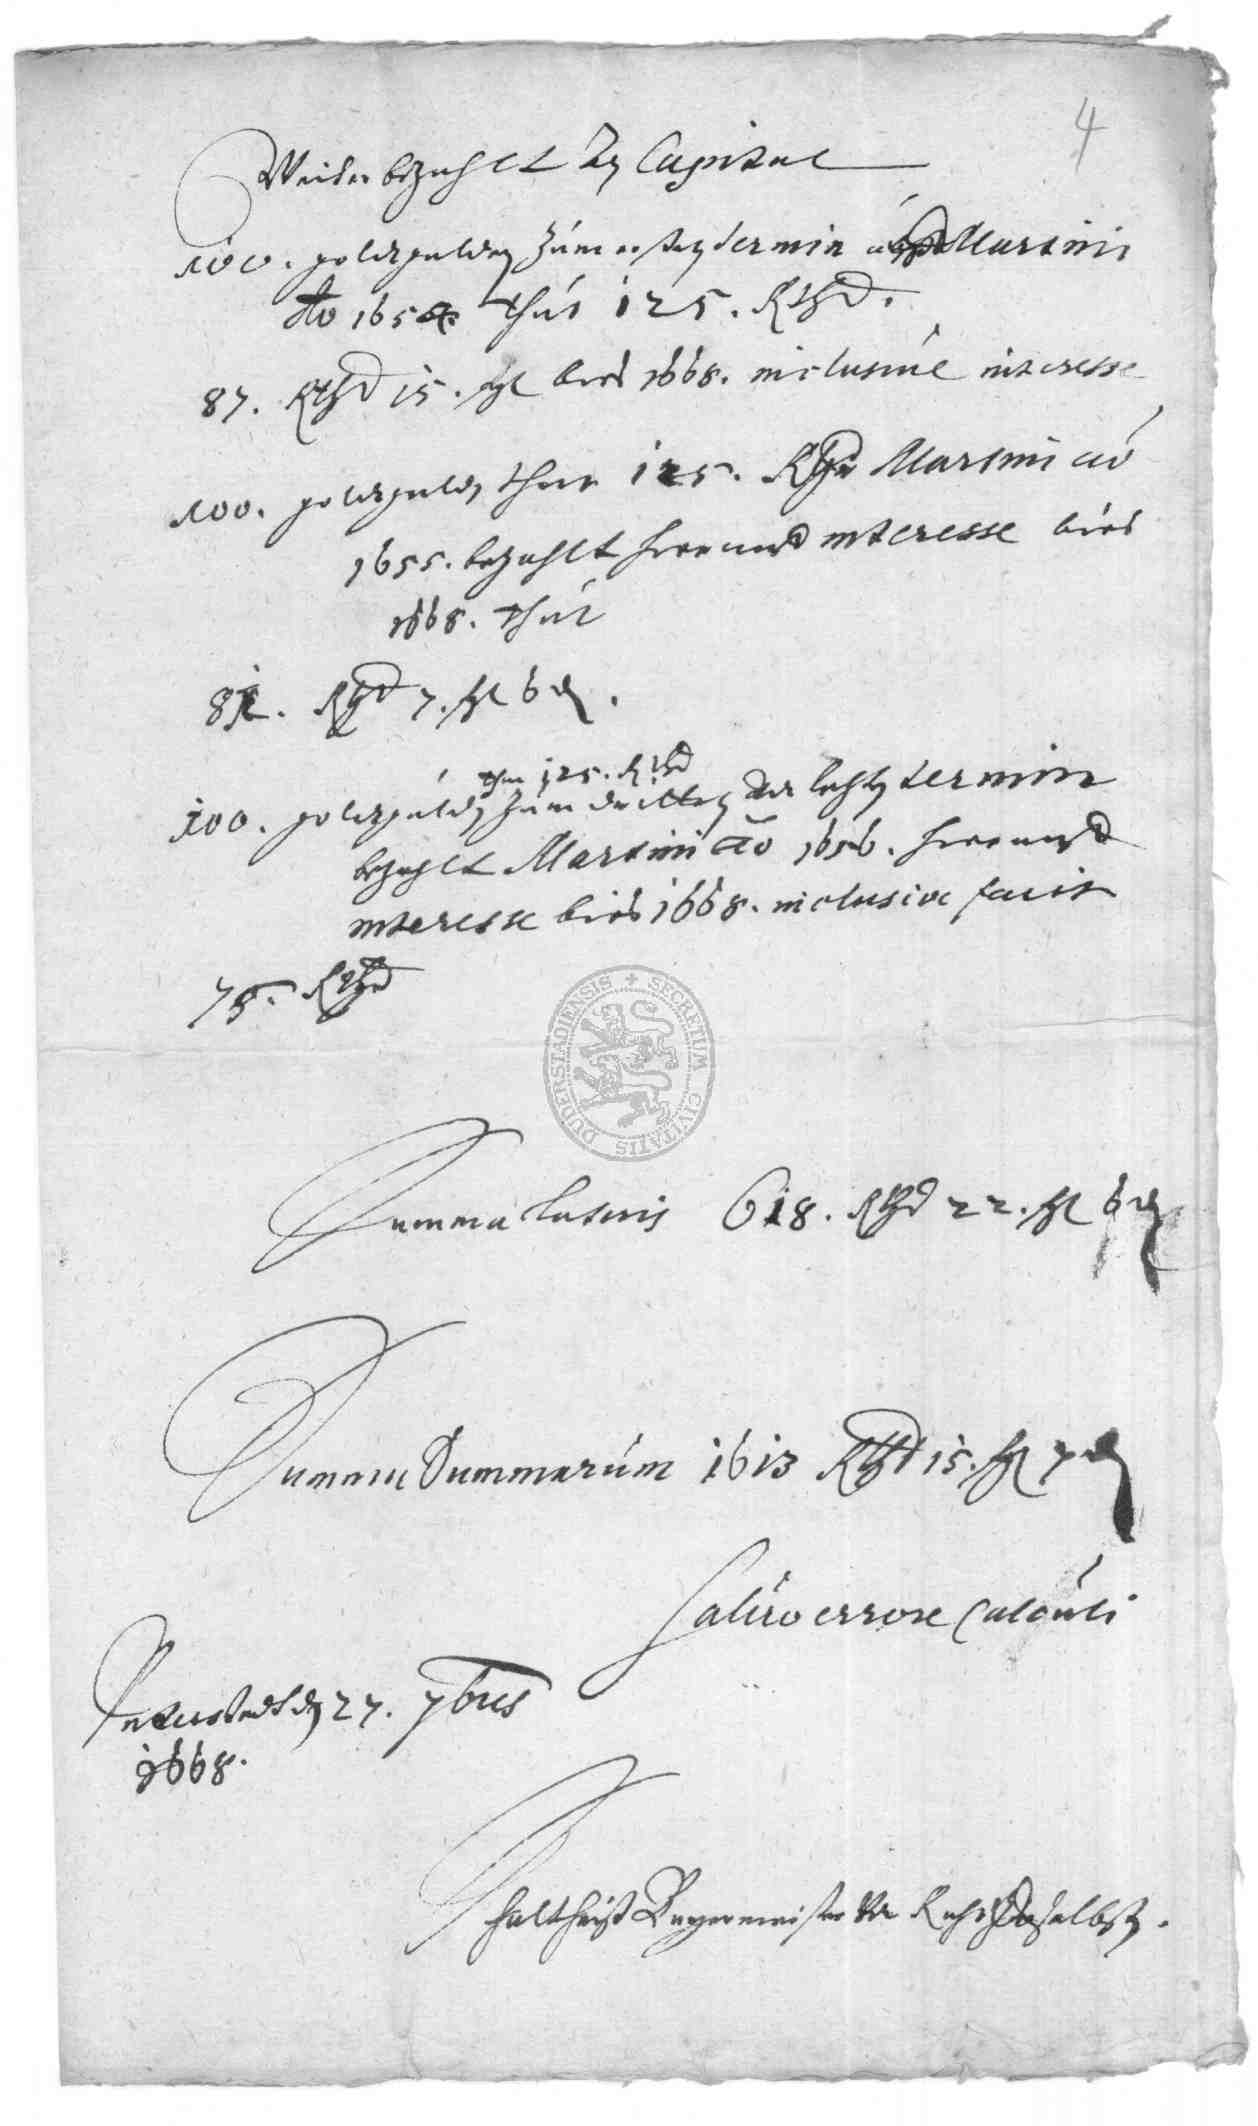 4
Weiter bezahlt An Capital
100. goldgulden zum ersten termin Martini
Ao 1654 thut 125. Rthd.
87. Rthd 15. sgl bis 1668. inclusive interesse
100. goldgulden thun 125. Rthd Martini ao
1655. bezahlt hievon interesse bis
1668. thut
81. Rthd 7. sgl 6 d.
thun 125. Rthd
100. goldgulden zum dritten letzten termin
bezahlt Martini ao 1656. hievon
interesse bis 1668. inclusive facit
75. Rthd
SECRETUM CIVITATIS DUDERSTADIENSIS
Summa lateris 618. Rthd 22. sgl 6 d
Summa Summarum 1613 Rthd 15. sgl 7 d
Salvo errore Calculi
den 27. 7bris
1668.
Schultheis Burgermeister Raht daselbst.